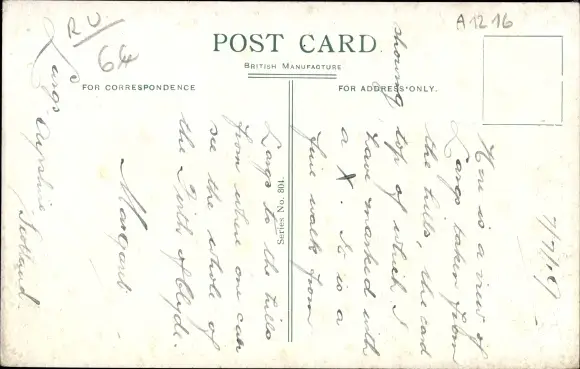 RU
64
A1216
POST CARD
BRITISH MANUFACTURE
FOR CORRESPONDENCE
FOR ADDRESS ONLY.
Series No. 804.
Here is a view of
Largs taken from
the hills, the card
showing top of which I
have marked with
a X. It is a
fine walk from
Largs to the hills
from where one can
see the whole of
the Firth of Clyde.
Margaret
Largs Ayrshire
Scotland.